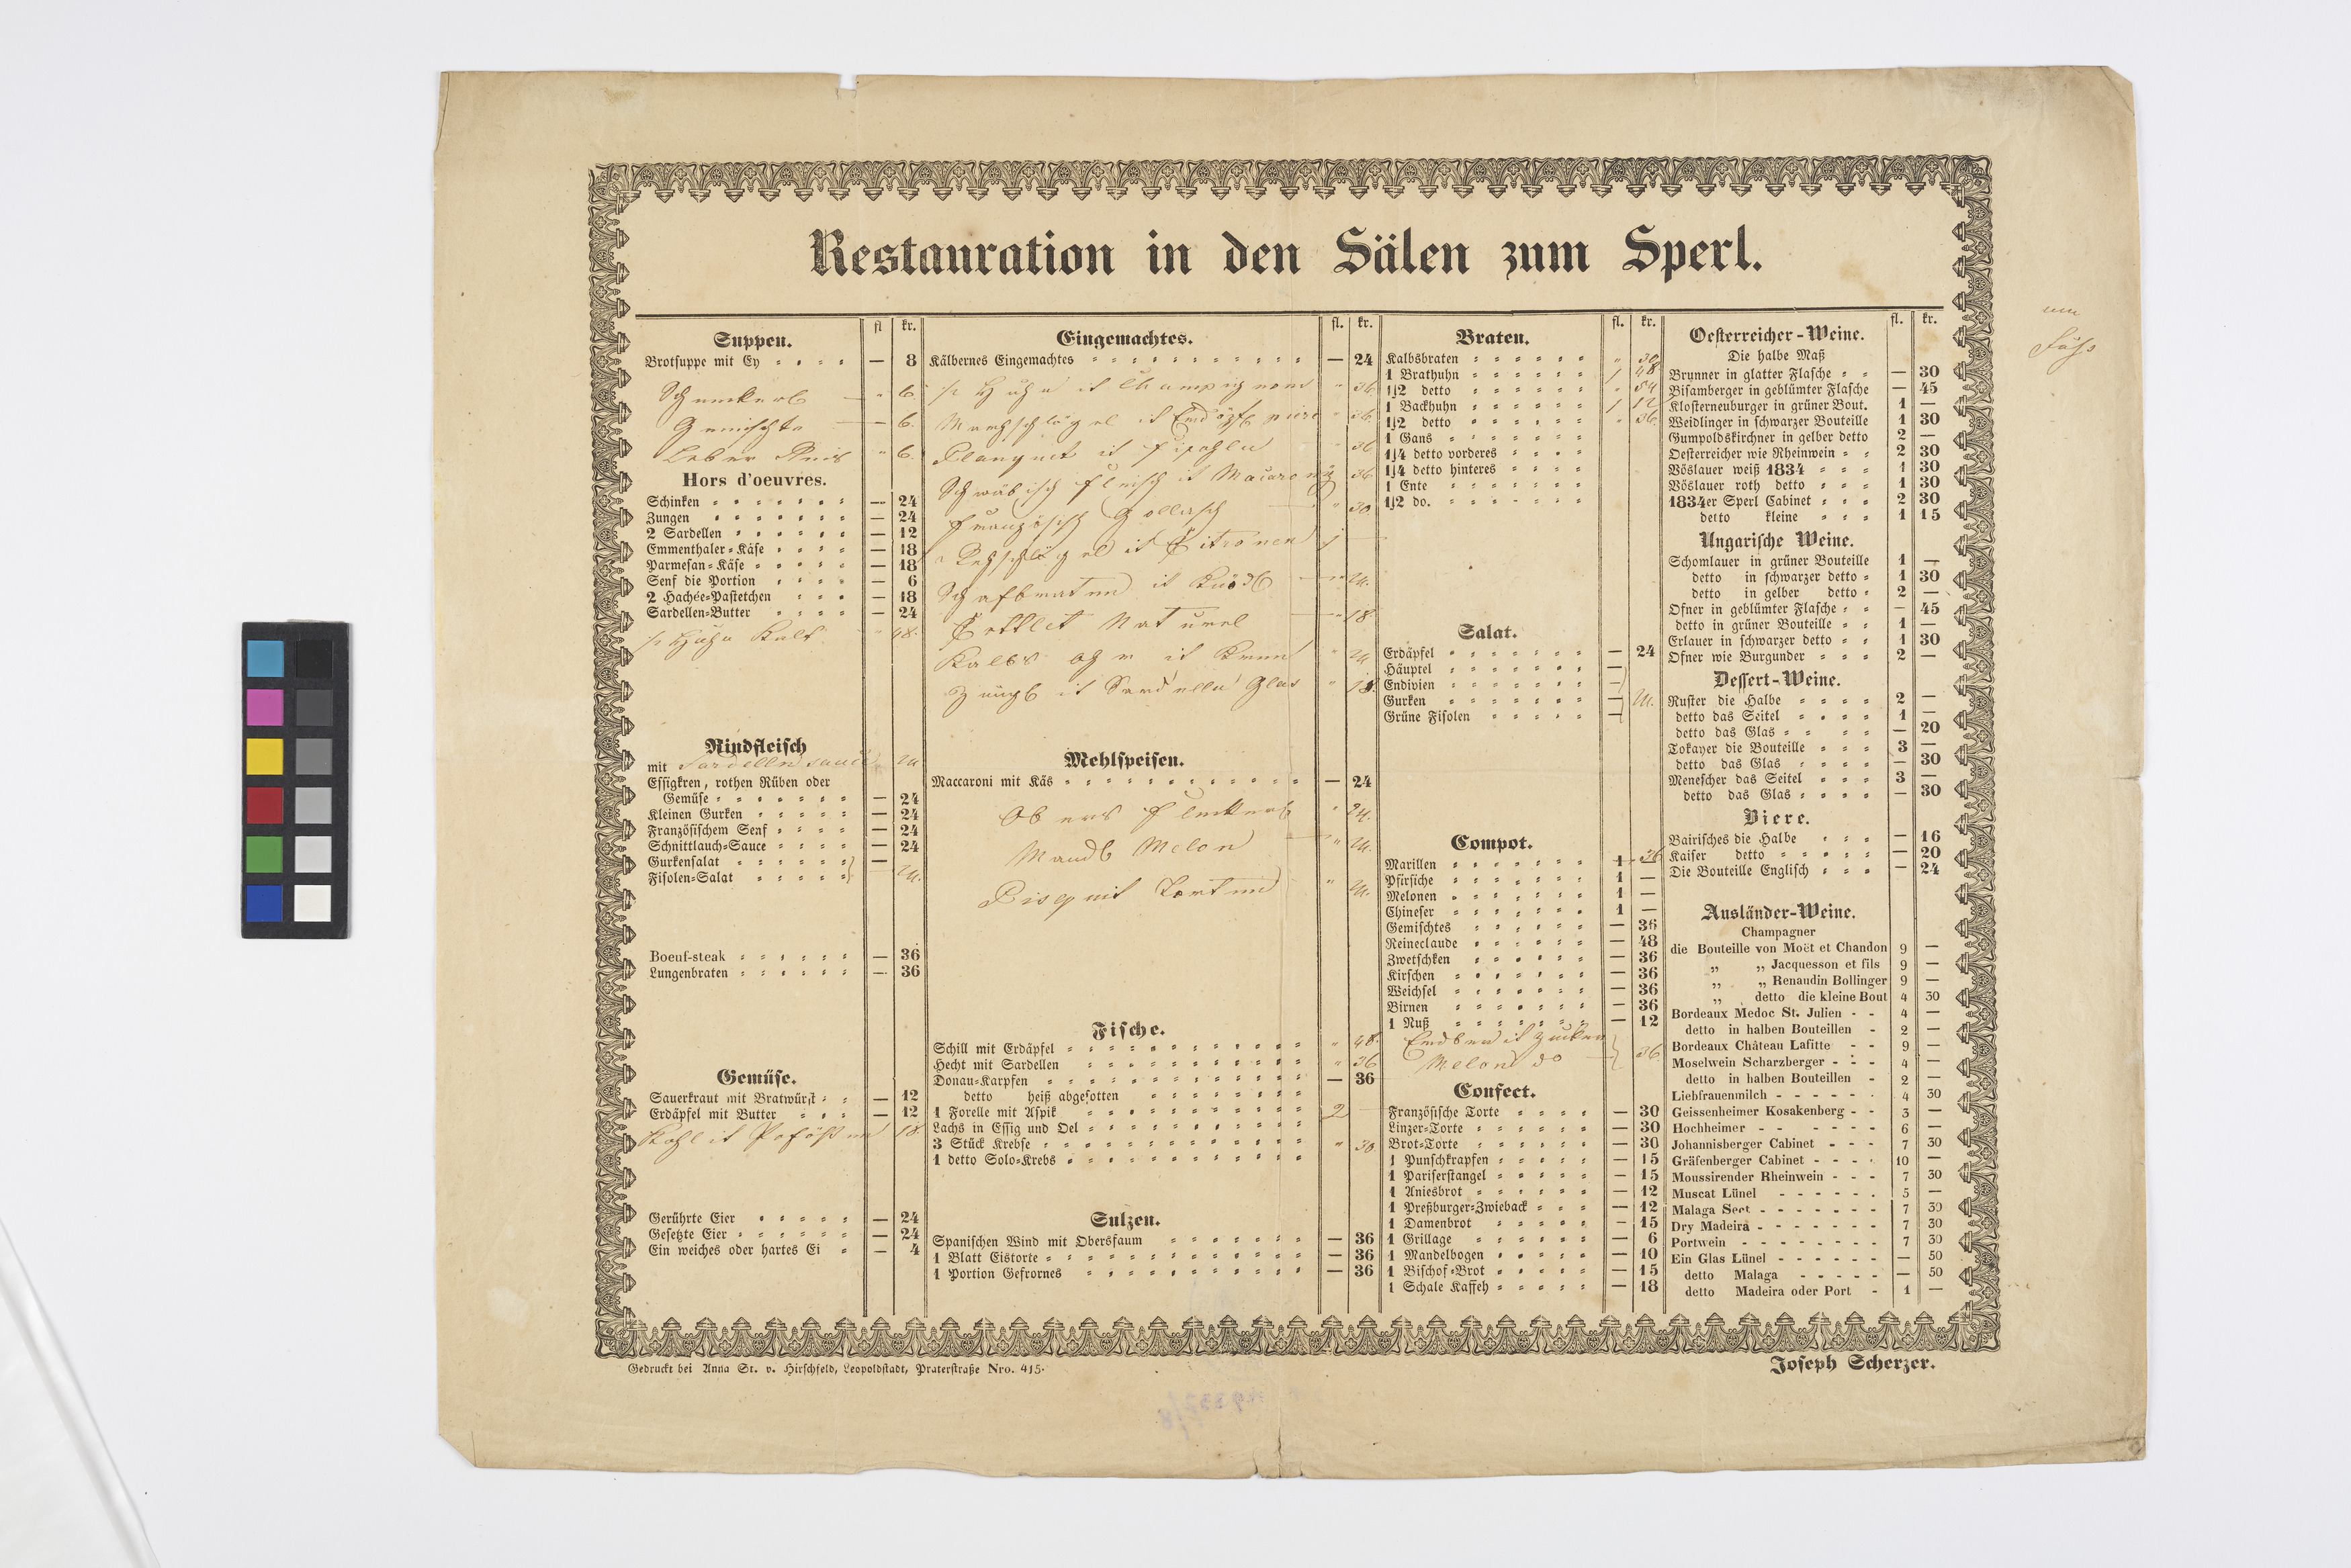 Restauration in den Sälen zum Sperl.
fl kr.
Suppen.
Brotsuppe mit Ey — 8
" 6.
— 6.
Leber Reis " 6.
Hors d'oeuvres.
Schinken — 24
Zungen — 24
2 Sardellen — 12
Emmenthaler-Käse — 18
Parmesan-Käse — 18
Senf die Portion — 6
2 Hachée-Pastetchen — 18
Sardellen-Butter — 24
Kalt " 48.
Rindfleisch
mit Sardelln sauce 24
Essigkren, rothen Rüben oder
Gemüse — 24
Kleinen Gurken — 24
Französischem Senf — 24
Schnittlauch-Sauce — 24
Gurkensalat —
Fisolen-Salat 24.
Boeuf-steak — 36
Lungenbraten — 36
Gemüse.
Sauerkraut mit Bratwürst — 12
Erdäpfel mit Butter — 12
Kohl it 18.
Gerührte Eier — 24
Gesetzte Eier — 24
Ein weiches oder hartes Ei — 4
fl. kr.
Eingemachtes.
Kälbernes Eingemachtes — 24
it Champignons " 36
it " 36.
it 36
Schwäbisch Fleisch it Macaroni 36
Französisch Gollasch " 30
it Citronen 1 —
Schafbraten it " 24.
Cottlet Naturel " 18.
Kalbs it Kren " 24
it Sardelln Glas " 18.
Mehlspeisen.
Maccaroni mit Käs — 24
Obers Fleckerl " 24.
Mandl Melon " 24.
Bisquit Torten " 24.
Fische.
Schill mit Erdäpfel " 48.
Hecht mit Sardellen " 36
Donau-Karpfen — 36
detto heiß abgesotten
1 Forelle mit Aspik 2 —
Lachs in Essig und Oel
3 Stück Krebse " 30
1 detto Solo-Krebs
Sulzen.
Spanischen Wind mit Obersfaum — 36
1 Blatt Eistorte — 36
1 Portion Gefrornes — 36
fl. kr.
Braten.
Kalbsbraten " 30
1 Brathuhn 1 48
1/2 detto " 54
1 Backhuhn 1 12
1/2 detto " 36.
1 Gans
1/4 detto vorderes
1/4 detto hinteres
1 Ente
1/2 do.
Salat.
Erdäpfel — 24
Häuptel —
Endivien —
Gurken — 24.
Grüne Fisolen —
Compot.
Marillen 36
Pfirsiche 1 —
Melonen 1 —
Chineser 1 —
Gemischtes — 36
Reineclaude — 48
Zwetschken — 36
Kirschen — 36
Weichsel — 36
Birnen — 36
1 Nuß — 12
it Zucker
Melon do 36.
Confect.
Französische Torte — 30
Linzer-Torte — 30
Brot-Torte — 30
1 Punschkrapfen — 15
1 Pariserstangel — 15
1 Aniesbrot — 12
1 Preßburger-Zwieback — 12
1 Damenbrot — 15
1 Grillage — 6
1 Mandelbogen — 10
1 Bischof-Brot — 15
1 Schale Kaffeh — 18
fl. kr.
Oesterreicher-Weine.
Die halbe Maß
Brunner in glatter Flasche — 30
Bisamberger in geblümter Flasche — 45
Klosterneuburger in grüner Bout. 1 —
Weidlinger in schwarzer Bouteille 1 30
Gumpoldskirchner in gelber detto 2 —
Oesterreicher wie Rheinwein 2 30
Vöslauer weiß 1834 1 30
Vöslauer roth detto 1 30
1834er Sperl Cabinet 2 30
detto kleine 1 15
Ungarische Weine.
Schomlauer in grüner Bouteille 1 —
detto in schwarzer detto 1 30
detto in gelber detto 2 —
Ofner in geblümter Flasche — 45
detto in grüner Bouteille 1 —
Erlauer in schwarzer detto 1 30
Ofner wie Burgunder 2 —
Dessert-Weine.
Ruster die Halbe 2 —
detto das Seitel 1 —
detto das Glas — 20
Tokayer die Bouteille 3 —
detto das Glas — 30
Menescher das Seitel 3 —
detto das Glas — 30
Biere.
Bairisches die Halbe — 16
Kaiser detto — 20
Die Bouteille Englisch — 24
Ausländer-Weine.
Champagner
die Bouteille von Moët et Chandon 9 —
„ „ Jacquesson et fils 9 —
„ „ Renaudin Bollinger 9 —
„ detto die kleine Bout 4 30
Bordeaux Medoc St. Julien 4 —
detto in halben Bouteillen 2 —
Bordeaux Château Lafitte 9 —
Moselwein Scharzberger 4 —
detto in halben Bouteillen 2 —
Liebfrauenmilch 4 30
Geissenheimer Kosakenberg 3 —
Hochheimer 6 —
Johannisberger Cabinet 7 30
Gräfenberger Cabinet 10 —
Moussirender Rheinwein 7 30
Muscat Lünel 5 —
Malaga Sect 7 30
Dry Madeira 7 30
Portwein 7 30
Ein Glas Lünel — 50
detto Malaga — 50
detto Madeira oder Port 1 —
Gedruckt bei Anna St. v. Hirschfeld, Leopoldstadt, Praterstraße Nro. 415.
Joseph Scherzer.